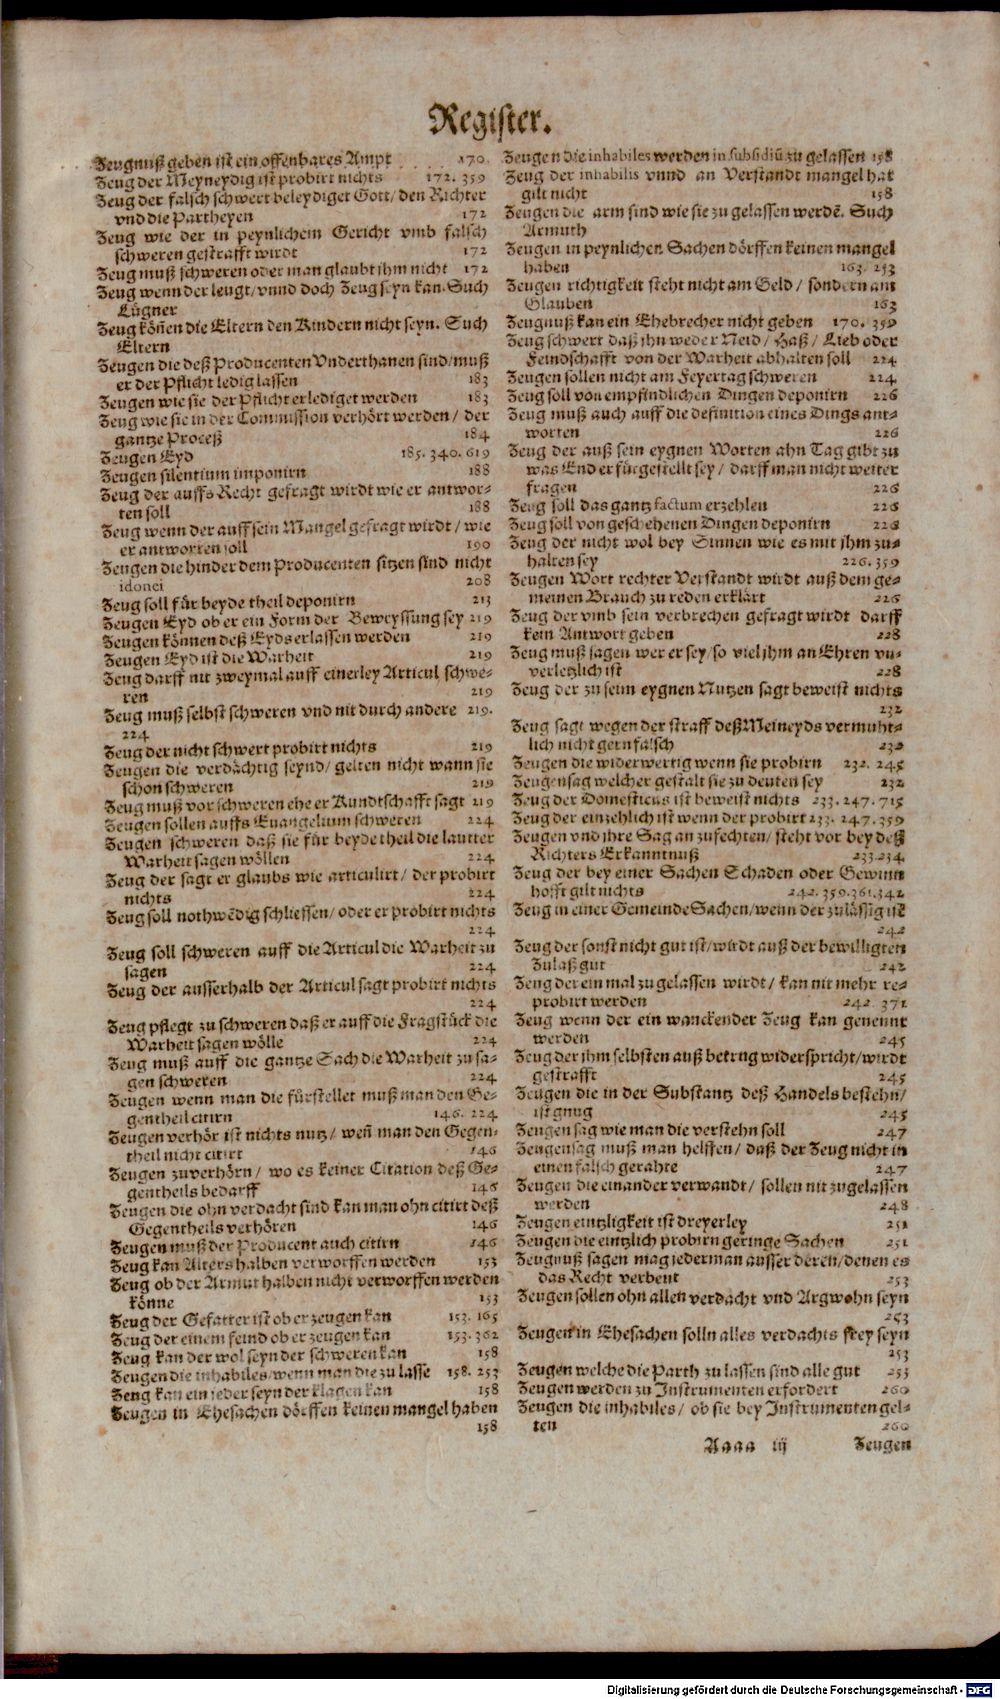 Register.
Zeugnuß geben ist ein offenbares Ampt 170.
Zeug der Meyneydig ist probirt nichts 172. 359
Zeug der falsch schwert beleydiget Gott/ den Richter
vnd die Partheyen 172
Zeug wie der in peynlichem Gericht vmb falsch
schweren gestrafft wirdt 172
Zeug muß schweren oder man glaubt jhm nicht 172
Zeug wenn der leugt/ vnnd doch Zeug seyn kan. Such
Lügner
Zeug köñen die Eltern den Kindern nicht seyn. Such
Eltern
Zeugen die deß Producenten Vnderthanen sind/ muß
er der Pflicht ledig lassen 183
Zeugen wie sie der Pflicht erlediget werden 183
Zeug wie sie in der Commission verhört werden / der
gantze Proceß 184
Zeugen Eyd 185. 340. 619
Zeugen silentium imponirn 188
Zeug der auffs Recht gefragt wirdt wie er antwor-
ten soll 188
Zeug wenn der auff sein Mangel gefragt wirdt / wie
er antworten soll 190
Zeugen die hinder dem Producenten sitzen sind nicht
idonei 208
Zeug soll für beyde theil deponirn 213
Zeugen Eyd ob er ein Form der Beweyssung sey 219
Zeugen können deß Eyds erlassen werden 219
Zeugen Eyd ist die Warheit 219
Zeug darff nit zweymal auff einerley Articul schwe-
ren 219
Zeug muß selbst schweren vnd nit durch andere 219.
224
Zeug der nicht schwert probirt nichts 219
Zeugen die verdächtig seynd/ gelten nicht wann sie
schon schweren 219
Zeug muß vor schweren ehe er Kundtschafft sagt 219
Zeugen sollen auffs Euangelium schweren 224
Zeugen schweren daß sie für beyde theil die lautter
Warheit sagen wöllen 224
Zeug der sagt er glaubs wie articulirt/ der probirt
nichts 224
Zeug soll nothwẽdig schliessen/ oder er probirt nichts
224
Zeug soll schweren auff die Articul die Warheit zu
sagen 224
Zeug der ausserhalb der Articul sagt probirt nichts
224
Zeug pflegt zu schweren daß er auff die Fragstück die
Warheit sagen wölle 224
Zeug muß auff die gantze Sach die Warheit zu sa-
gen schweren 224
Zeugen wenn man die fürstellet muß man den Ge-
gentheil citirn 146. 224
Zeugen verhör ist nichts nutz/ weñ man den Gegen-
theil nicht citirt 146
Zeugen zuverhörn/ wo es keiner Citation deß Ge-
gentheils bedarff 146
Zeugen die ohn verdacht sind kan man ohn citirt deß
Gegentheils verhören 146
Zeugen muß der Producent auch citirn 146
Zeug kan Alters halben verworffen werden 153
Zeug ob der Armut halben nicht verworffen werden
könne 153
Zeug der Gefatter ist ob er zeugen kan 153. 165
Zeug der einem feind ob er zeugen kan 153. 362
Zeug kan der wol seyn der schweren kan 158
Zeugen die inhabiles/ wenn man die zu lasse 158. 253
Zeug kan ein jeder seyn der klagen kan 158
Zeugen in Ehesachen dörffen keinen mangel haben
158
Zeugen die inhabiles werden in subsidiũ zu gelassen 158
Zeug der inhabilis vnnd an Verstandt mangel hat
gilt nicht 158
Zeugen die arm sind wie sie zu gelassen werdẽ. Such
Armuth
Zeugen in peynlichen Sachen dörffen keinen mangel
haben 163. 253
Zeugen richtigkeit steht nicht am Geld / sondern am
Glauben 163
Zeugnuß kan ein Ehebrecher nicht geben 170. 359
Zeug schwert daß jhn weder Neid / Haß / Lieb oder
Feindschafft von der Warheit abhalten soll 224
Zeugen sollen nicht am Feyertag schweren 224
Zeug soll von empfindlichen Dingen deponirn 226
Zeug muß auch auff die definition eines Dings ant-
worten 226
Zeug der auß sein eygnen Worten ahn Tag gibt zu
was End er fürgestellt sey / darff man nicht weiter
fragen 226
Zeug soll das gantz factum erzehlen 226
Zeug soll von geschehenen Dingen deponirn 226
Zeug der nicht wol bey Sinnen wie es mit jhm zu-
halten sey 226. 359
Zeugen Wort rechter Verstandt wirdt auß dem ge-
meinen Brauch zu reden erklärt 226
Zeug der vmb sein verbrechen gefragt wirdt darff
kein Antwort geben 228
Zeug muß sagen wer er sey/ so viel jhm an Ehren vn-
verletzlich ist 228
Zeug der zu seim eygnen Nutzen sagt beweist nichts
232
Zeug sagt wegen der straff deß Meineyds vermuht-
lich nicht gern falsch 232
Zeugen die widerwertig wenn sie probirn 232. 245
Zeugensag welcher gestalt sie zu deuten sey 232
Zeug der Domesticus ist beweist nichts 233. 247. 715
Zeug der einzehlich ist wenn der probirt 233. 247. 359
Zeugen vnd jhre Sag anzufechten/ steht vor bey deß
Richters Erkanntnuß 233.234.
Zeug der bey einer Sachen Schaden oder Gewinn
hofft gilt nichts 242. 359. 361. 342
Zeug in einer Gemeinde Sachen/ wenn der zulässig ist
242
Zeug der sonst nicht gut ist/ wirdt auß der bewilligten
Zulaß gut 242
Zeug der ein mal zu gelassen wirdt / kan nit mehr re-
probirt werden 242. 371
Zeug wenn der ein wanckender Zeug kan genennt
werden 245
Zeug der jhm selbsten auß betrug widerspricht/ wirdt
gestrafft 245
Zeugen die in der Substantz deß Handels bestehn/
ist gnug 245
Zeugen sag wie man die verstehn soll 247
Zeugensag muß man helffen / daß der Zeug nicht in
einen falsch gerahte 247
Zeugen die einander verwandt/ sollen nit zugelassen
werden 248
Zeugen eintzligkeit ist dreyerley 251
Zeugen die eintzlich probirn geringe Sachen 251
Zeugnuß sagen mag jederman ausser deren/ denen es
das Recht verbeut 253
Zeugen sollen ohn allen verdacht vnd Argwohn seyn
253
Zeugen in Ehesachen solln alles verdachts frey seyn
253
Zeugen welche die Parth zu lassen sind alle gut 253
Zeugen werden zu Instrumenten erfordert 260
Zeugen die inhabiles/ ob sie bey Instrumenten gel-
ten 260
Aaaa iij Zeugen
Digitalisierung gefördert durch die Deutsche Forschungsgemeinschaft - DFG